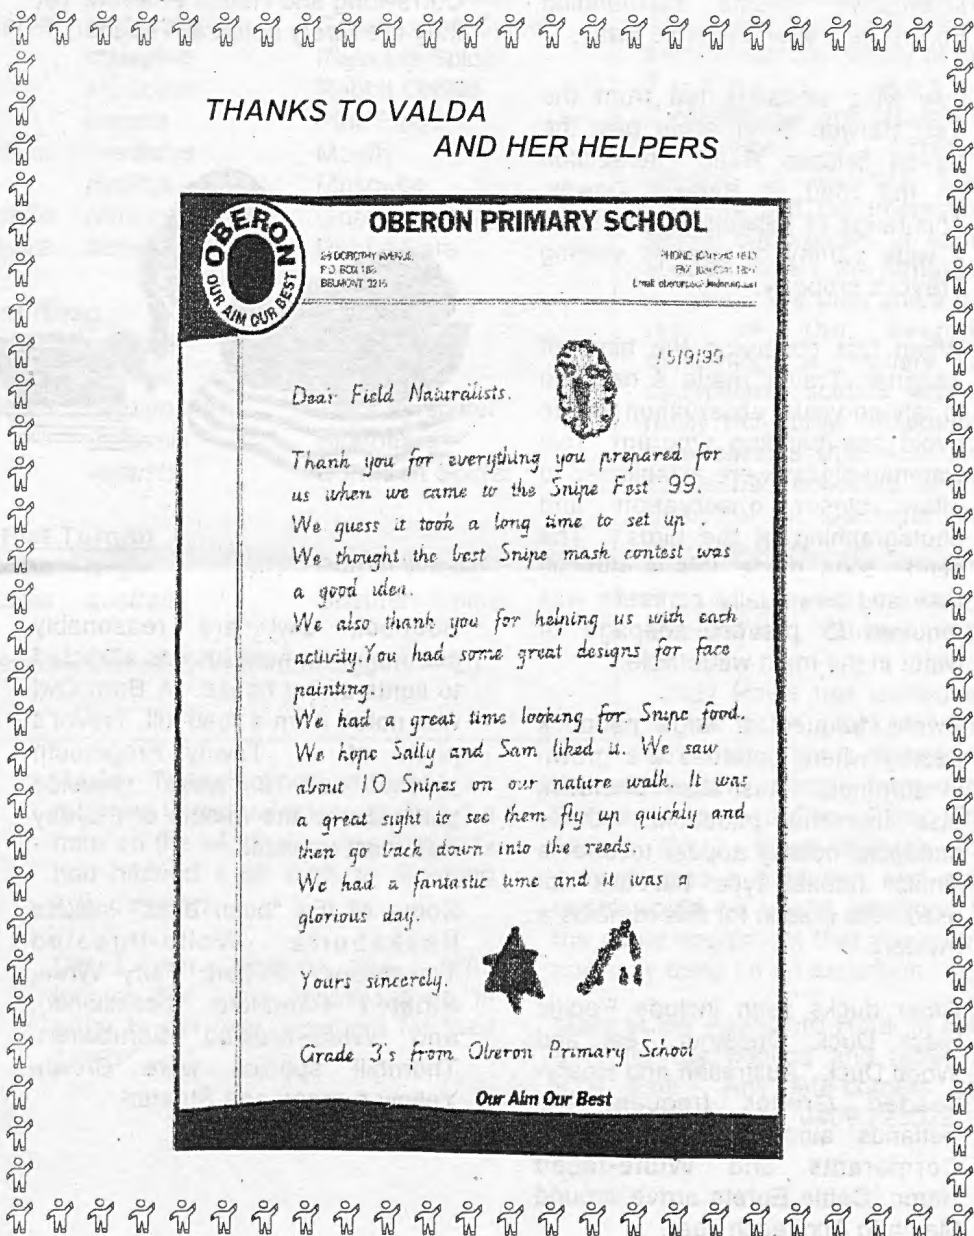 THANKS TO VALDA
AND HER HELPERS
OBERON
OUR AIM OUR BEST
OBERON PRIMARY SCHOOL
DOROTHY AVENUE,
P.O. BOX
BELMONT 3216
PHONE
FAX
Email
15/9/99
Dear Field Naturalists.
Thank you for everything you prepared for
us when we came to the Snipe Fest 99.
We guess it took a long time to set up.
We thought the best Snipe mask contest was
a good idea.
We also thank you for helping us with each
activity. You had some great designs for face
painting.
We had a great time looking for Snipe food.
We hope Sally and Sam liked it. We saw
about 10 Snipes on our nature walk. It was
a great sight to see them fly up quickly and
then go back down into the reeds.
We had a fantastic time and it was a
glorious day.
Yours sincerely.
Grade 3's from Oberon Primary School
Our Aim Our Best